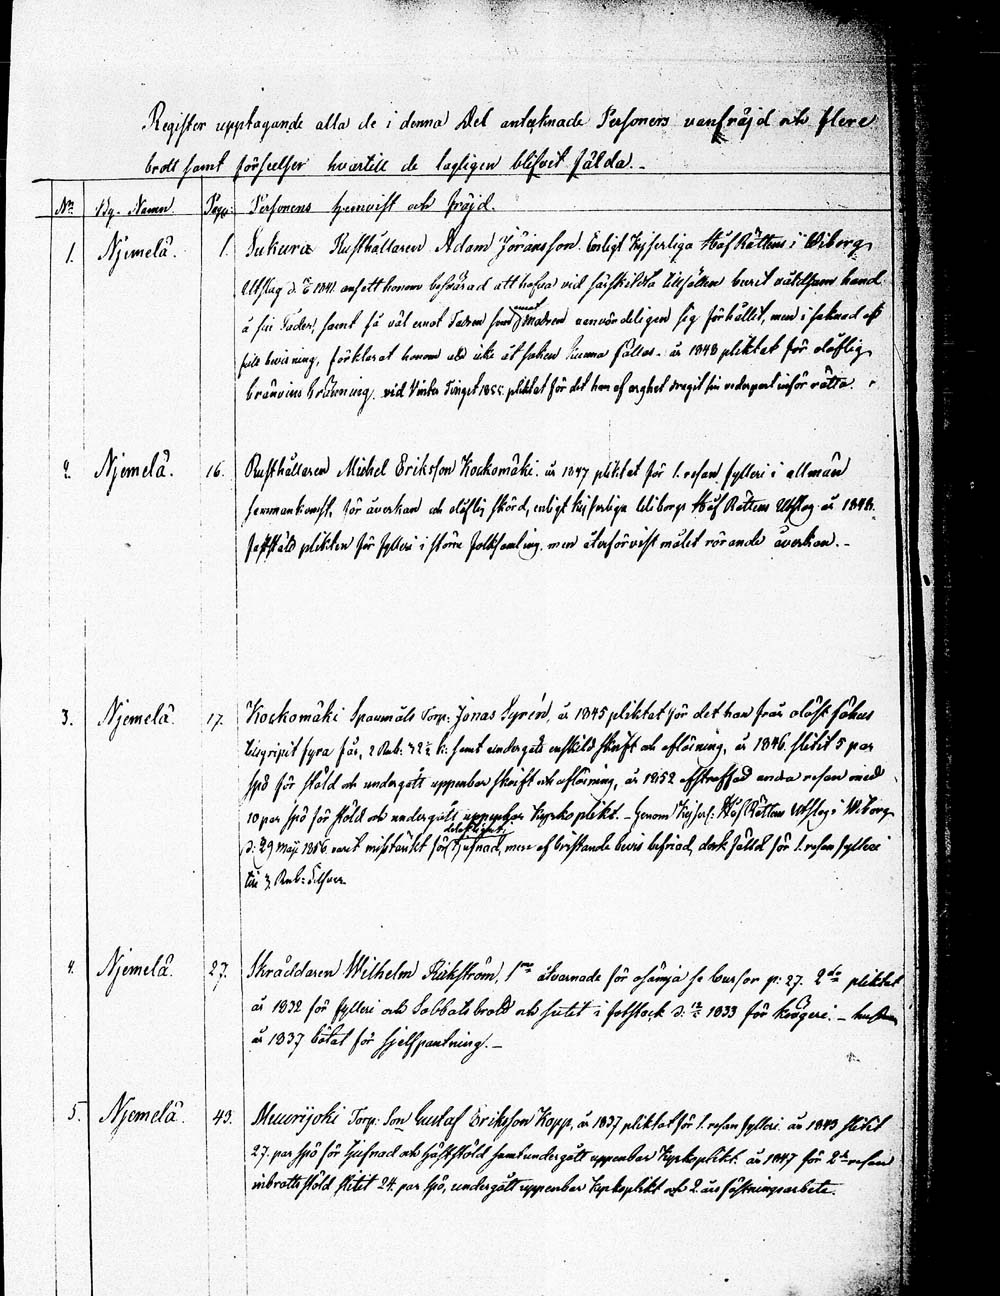 Register upptagande alla de i denna Del antecknade Personers vanfräjd och flere
brott samt förseelser hvartill de lagligen blifvit fälda.
No By. Namn. Pag: Personens hemvist och fräjd.
1. Njemelä. 1. Sukura Rusthållaren Adam Jöransson. Enligt Kejserliga Hof Rättens i Wiborg
Utslag d. 1841 ansett honom besvärad att hafva vid särskildta tillfällen burit våldsam hand
å sin Fader, samt så väl emot Fadren som emot Modren vanvördeligen sig förhållit, men i saknad af
full bevisning, förklarat honom ej icke åt saken kunna fällas. år 1848 pliktat för olaflig
bränvins bränning. vid Vinter Tinget 1855. pliktat för det han af arghet dragit sin vederpart inför rätta.
2. Njemelä. 16. Rusthållaren Michel Eriksson Kockomäki. år 1847 pliktat för 1. resan fylleri i allmän
sammankomst, för åverkan och olaflig skörd, enligt Kejserliga Wiborgs Hof Rättens Utslag år 1848.
fastställd plikten för fylleri i större folksamling, men återförvist målet rörande åverkan.
3. Njemelä. 17. Kockomäki Spanmåls Torp: Jonas Syrén, år 1845 pliktat för det han från olåst fähus
tillgripit fyra får, 2 Rub: 32½ k: samt undergått enskild skrift och aflösning, år 1846. slitit 5 par
spö för stöld och undergått uppenbar skrift och aflösning, år 1852 afstraffad andra resan med
10 par spö för stöld och undergått uppenbar Kyrkoplikt. - Genom Kejserl: Hof Rättens Utslag i Wiborg
d. 29 Maji 1856 varit misstänkt för delaktighet tjufnad, men af bristande bevis befriad, dock fälld för 1. resan fylleri
till 3. Rub: Silfver.
4. Njemelä. 27. Skräddaren Wilhelm Rickström, 1mo åtvarnade för osämja se pr: 27. 2do pliktat
år 1832 för fylleri och Sabbatsbrott och sutit i fotstock d. 1833 för krögeri. - hustrun
år 1837 bötat för sjelfpantning.
5. Njemelä. 43. Meurijoki Torp: Son Gustaf Eriksson Kopp, år 1837 pliktat för 1. resan fylleri. år 1843 slitit
27. par spö för tjufnad och häststöld samt undergått uppenbar Kyrkoplikt. år 1847 för 2dra resan
inbrotts stöld slitit 24. par spö, undergått uppenbar Kyrkoplikt och 2. års fästningsarbete.